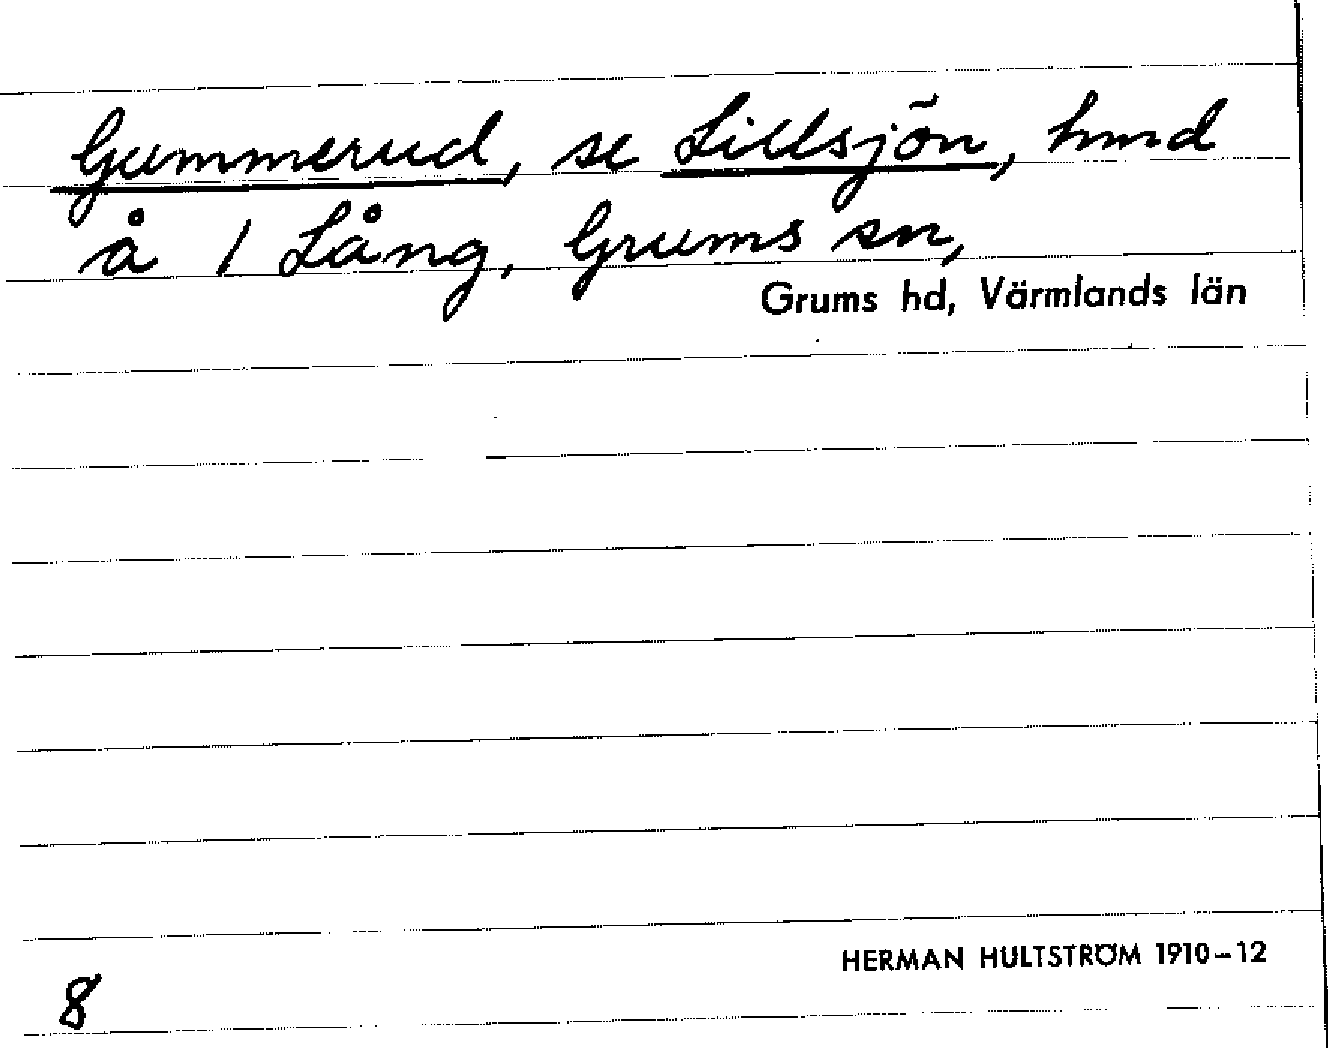 Gummerud, se Lillsjön, hmd
å 1 Lång, Grums sn,
Grums hd, Värmlands län
HERMAN HULTSTRÖM 1910-12
8